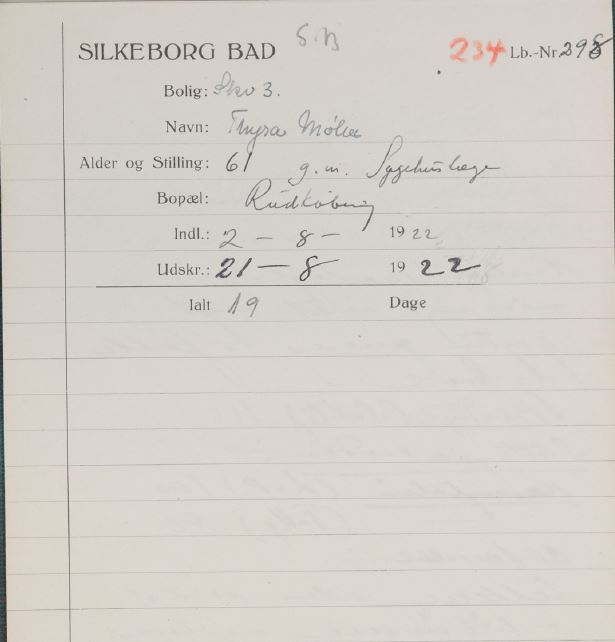 SILKEBORG BAD S.B 234 Lb.-Nr. 298
Bolig: Skv 3.
Navn: Thyra Møller
Alder og Stilling: 61 g. m. Sygehuslæge
Bopæl: Rudkøbing
Indl.: 2 - 8 - 1922
Udskr.: 21 - 8 1922
Ialt 19 Dage